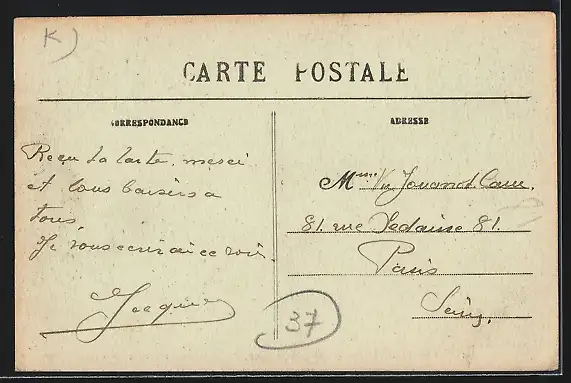 K)
CARTE POSTALE
CORRESPONDANCE
ADRESSE
Reçu ta carte, merci
et bons baisers a
tous
Je vous ecrirai ce soir.
Jacques
Mme Vve Jouanot
81 rue Sedaine 81.
Paris
Seine
37